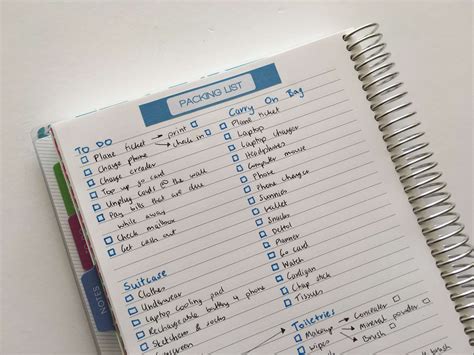 PACKING LIST
TO DO
Plane ticket → print
→ check in
Charge phone
Charge ereader
Top up go card
Unplug cords @ the wall
Pay bills that are due
while away
Check mailbox
Get cash out
Carry On Bag
Plane ticket
Laptop
Laptop charger
Headphones
Computer mouse
Phone
Phone charger
Sunnies
Wallet
Snacks
Planner
Go card
Watch
Cardigan
Chap stick
Tissues
Suitcase
Clothes
Underwear
Laptop cooling pad
Rechargeable battery 4 phone
Sketchers & socks
Sunscreen
Toiletries
Makeup → Concealer
→ Mineral powder
→ Brush
Wipes
NOTES